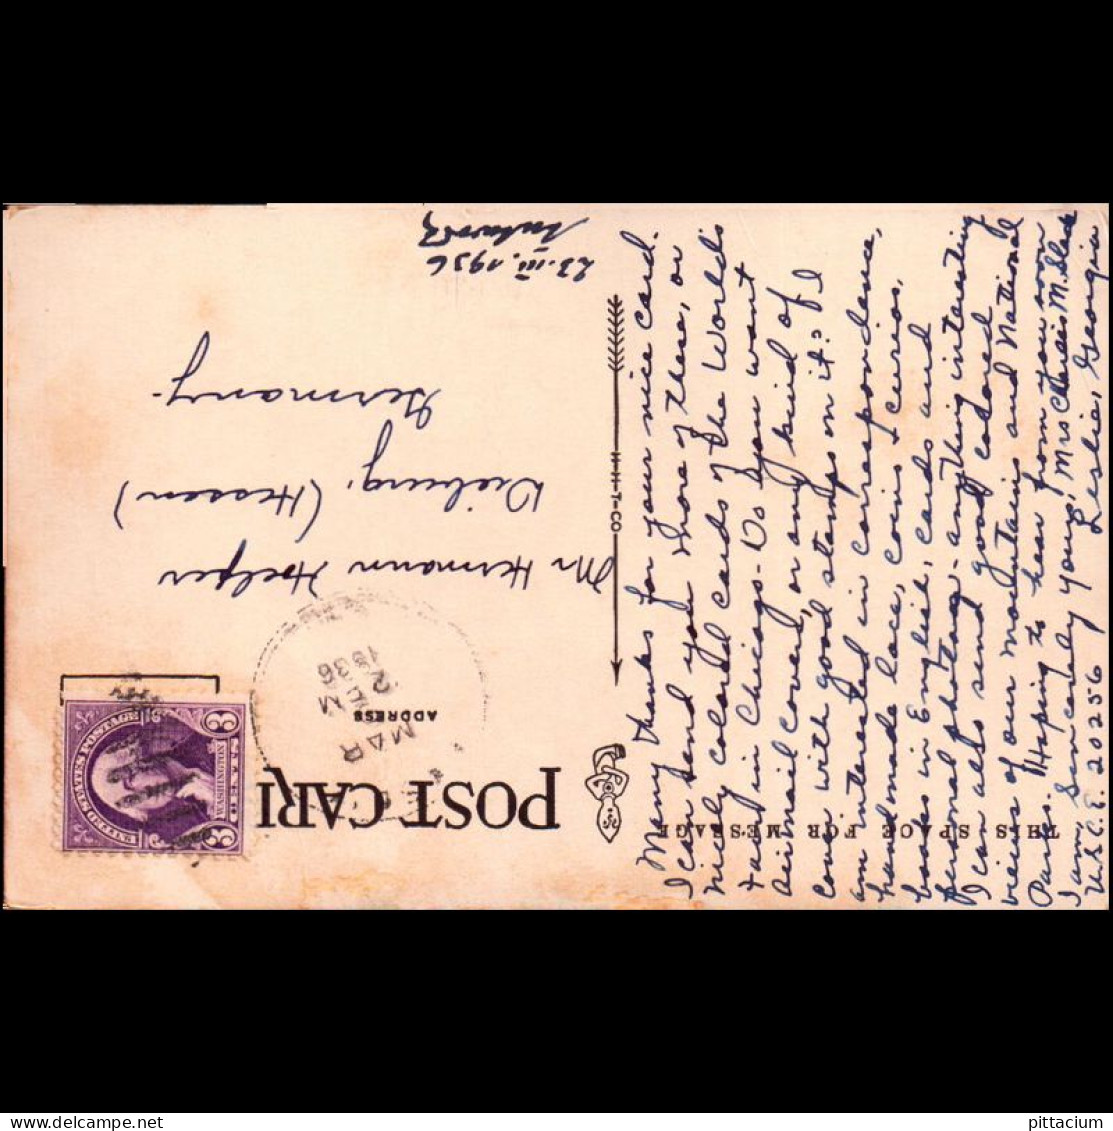 Many thanks for your nice card.
I can send you more of these, or
nicely colored cards of the World's
Fair in Chicago. Do you want
airmail covers, or any kind of
cover with good stamps on it? I
am interested in correspondence,
handmade lace, coins & curios,
books in English, cards and
personal photos, anything interesting
I can also send good colored
views of our mountains and National
Parks. Hoping to hear from you soon
I am Sincerely yours, Mrs M. Slack
U.S.C.E. 20256 Leslie, Georgia
THIS SPACE FOR MESSAGE
H-H-T-CO
POST CARD
ADDRESS
MAR
2
1936
UNITED STATES POSTAGE
WASHINGTON
3 CENTS 3
Mr Hermann Hoelzer
Dieburg, (Hessen)
Germany.
23.III.1936
pittacium